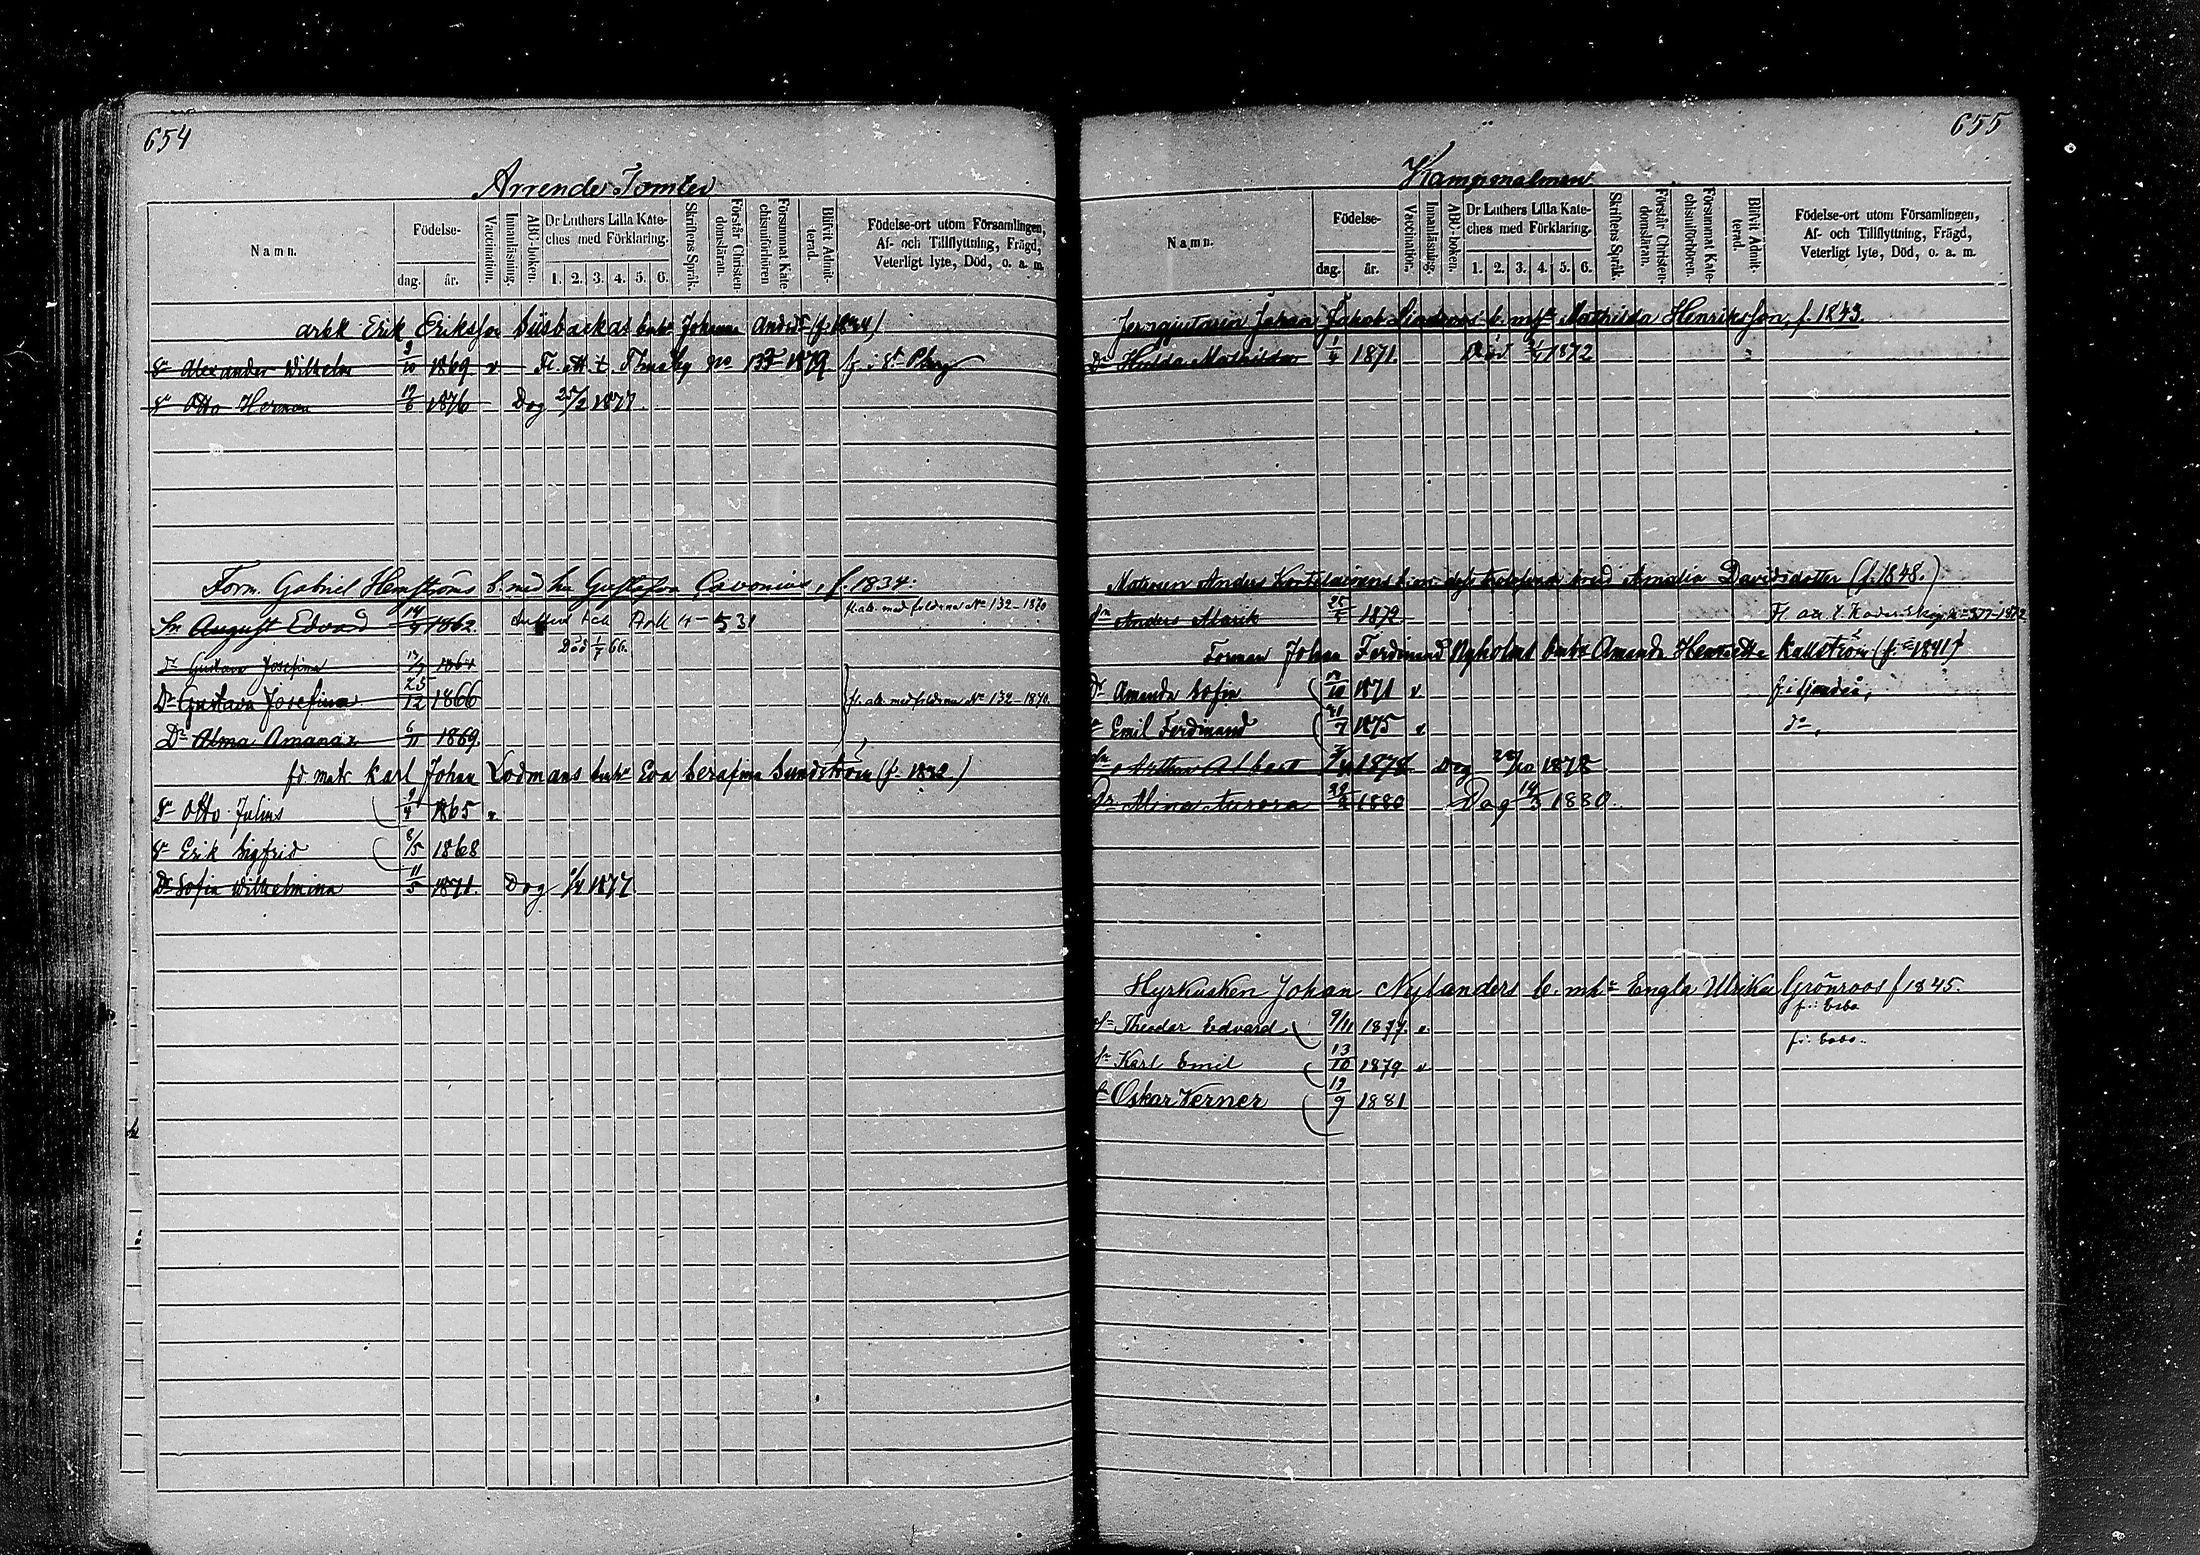 654
Arrende Tomter
Namn.
Födelse-
dag.
år.
Vaccination.
Innanläsning.
ABC-boken.
Dr Luthers Lilla Kate-
ches med Förklaring.
1. 2. 3. 4. 5. 6.
Skriftens Språk.
Förstår Christen-
domsläran.
Försummat Kate-
chismiförhören
Blifvit Admit-
terad.
Födelse-ort utom Församlingen,
Af- och Tillflyttning, Frägd,
Veterligt lyte, Död, o. a. m.
arbk Erik Eriksson Johanna (f. 1834)
Sn Alexander Wilhelm 2/10 1869 v Fl. att. t. No 132 1879 f. i St Pbrg
Sn Otto Herman 12/6 1876 Dog 25/2 1877.
Form. Gabriel Hemströms b. med hu Gustafva Cavonius, f. 1834.
Sn August Edvard 14/9 1862. 531 fl. att. med földrarna No 132-1870
Död 1/7 66.
Dr Gustava Josefina 13/3 1864
Dr Gustava Josefina 25/12 1866 fl. att. med földrarna No 132-1870.
Dr Alma Amanda 6/11 1869.
fd matr Karl Johan Lodmans Eva Serafina Sundström (f. 1832)
Sn Otto Julius 2/4 1865 v
Sn Erik Sigfrid 8/5 1868
Dr Sofia Wilhelmina 11/5 1871. Dog 1877.
655
Kampmalmen
Namn.
Födelse-
dag.
år.
Vaccination.
Innanläsning.
ABC-boken.
Dr Luthers Lilla Kate-
ches med Förklaring.
1. 2. 3. 4. 5. 6.
Skriftens Språk.
Förstår Christen-
domsläran.
Försummat Kate-
chismiförhören.
Blifvit Admit-
terad.
Födelse-ort utom Församlingen,
Af- och Tillflyttning, Frägd,
Veterligt lyte, Död, o. a. m.
Jerngjutaren Johan Jakob Lindroos b. m. Mathilda Henriksson, f. 1843.
Dr Hulda Mathilda 1/4 1871. Död 1872
Matrosen Anders b. m. Amalia Davidsdotter (f. 1848.)
Sn Anders 25/5 1872. Fl. att. t. 1872
Forman Johan Ferdinand Nyholms Amanda Henrietta Källström (f. 1841)
Dr Amanda Sofia 10 1871 v f. i Sjundeå,
Sn Emil Ferdinand 21/7 1875 v do,
Sn Arthur Albert 1878 Dog 28/10 1878
Dr Mina Aurora 1880 Dog 14/3 1880.
Hyrkusken Johan Nylanders b. mhu Engla Ulrika Grönroos f 1845.
Sn Theodor Edvard 9/11 1877. v f. i Esbo
Sn Karl Emil 13/10 1879 v f. i Esbo
Sn Oskar Verner 12/9 1881